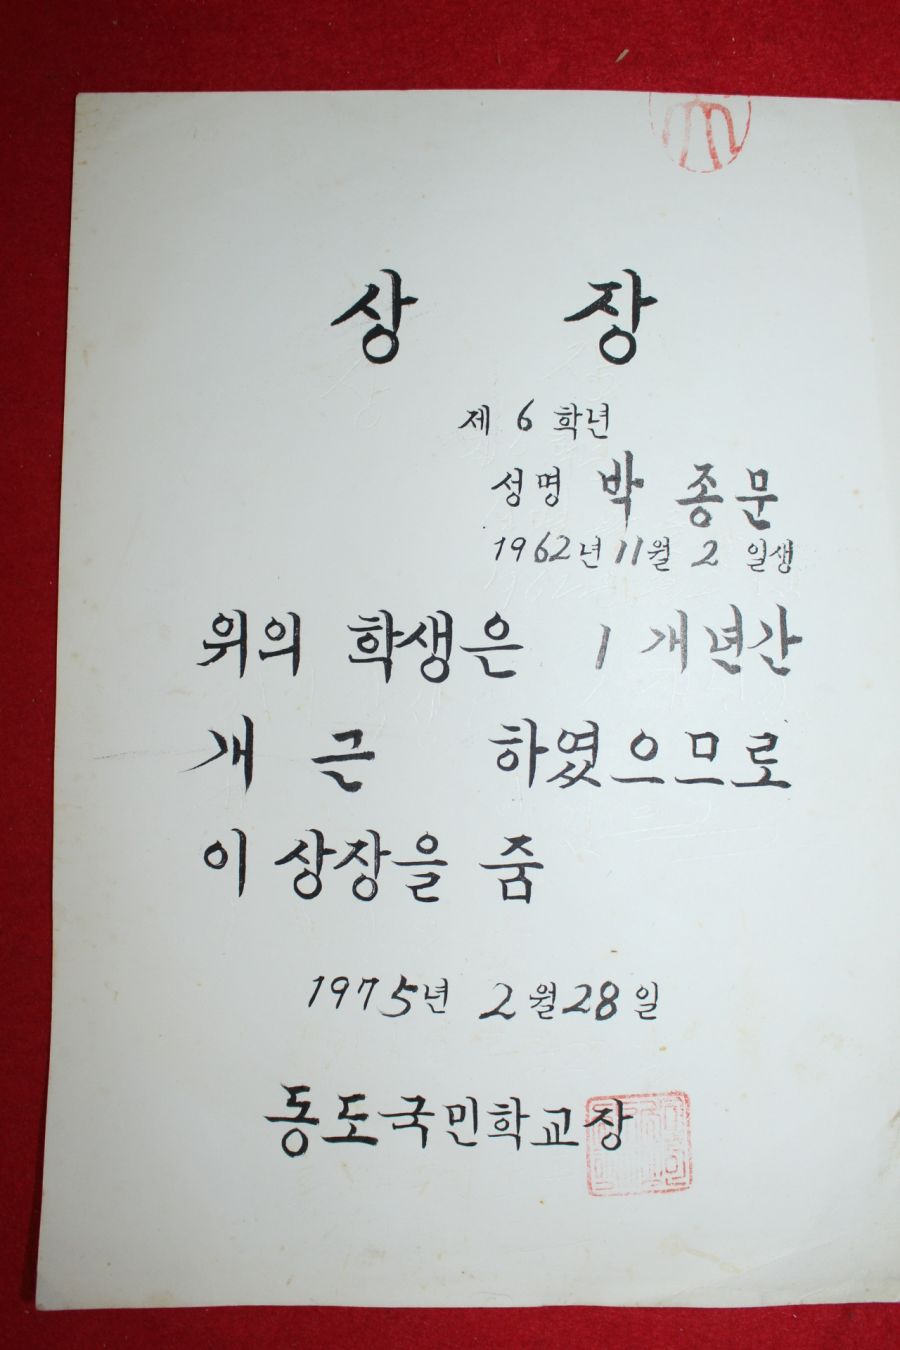 상 장
제 6 학년
성명 박 종 문
1962년 11월 2 일생
위의 학생은 1 개년간
개 근 하였으므로
이 상장을 줌
1975년 2월 28일
동도국민학교장